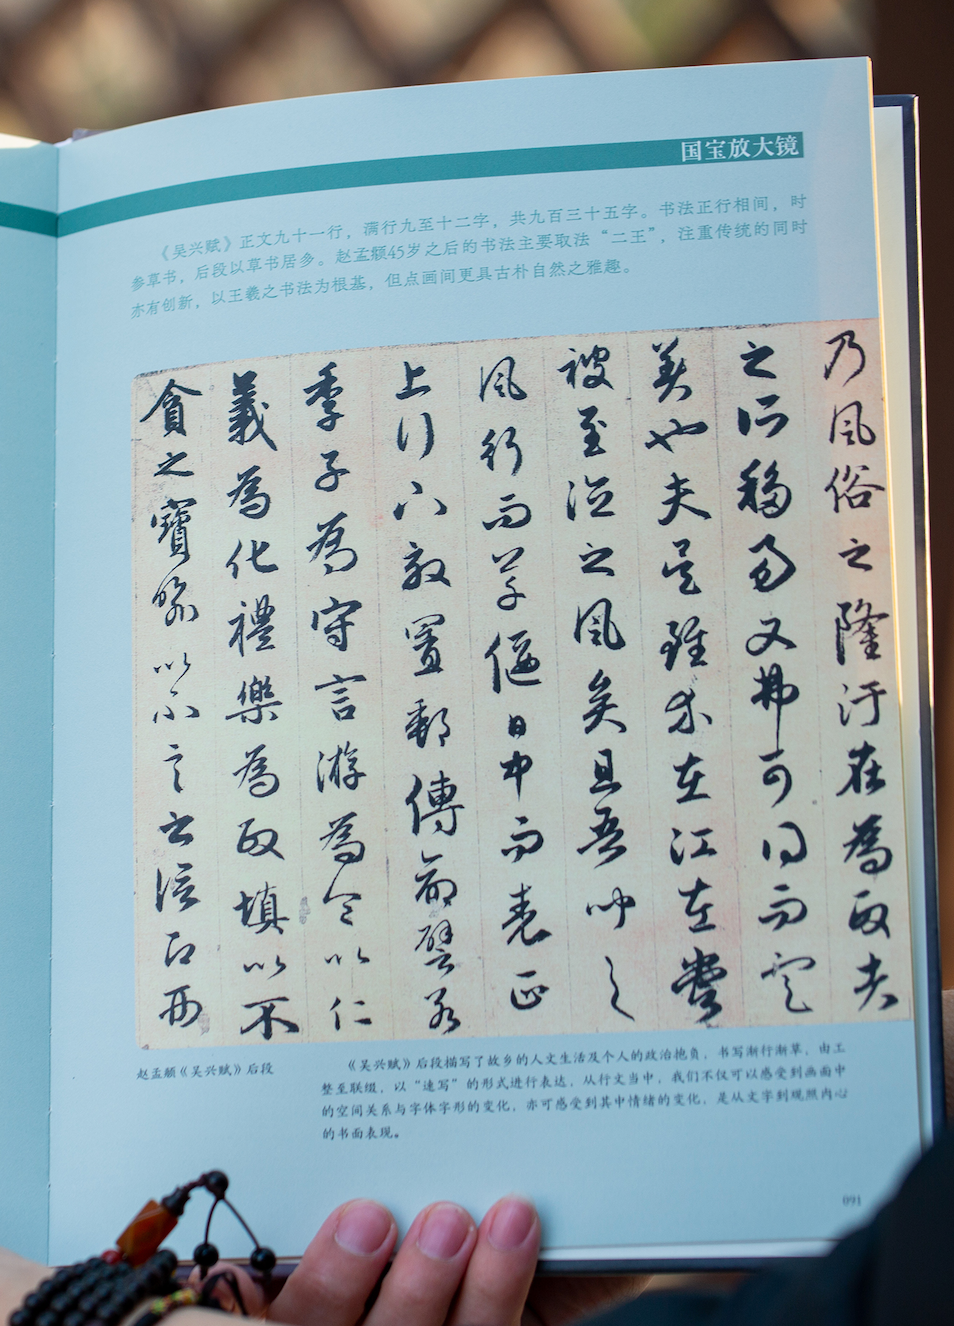 国宝放大镜
《吴兴赋》正文九十一行，满行九至十二字，共九百三十五字。书法正行相间，时
参草书，后段以草书居多。赵孟頫45岁之后的书法主要取法“二王”，注重传统的同时
亦有创新，以王羲之书法为根基，但点画间更具古朴自然之雅趣。
乃風俗之隆汙在為政
之所移易又弗可而
美也夫吳雖在江左嘗
被至德之風矣且吾聞之
風行而草偃日中而表正
上行下效置郵傳命譬若
季子為守言游為令以仁
義為化禮樂為政填以不
貪之寶喻以不言之信而
赵孟頫《吴兴赋》后段
《吴兴赋》后段描写了故乡的人文生活及个人的政治抱负，书写渐行渐草，由工
整至联缀，以“速写”的形式进行表达，从行文当中，我们不仅可以感受到画面中
的空间关系与字体字形的变化，亦可感受到其中情绪的变化，是从文字到观照内心
的书面表现。
091